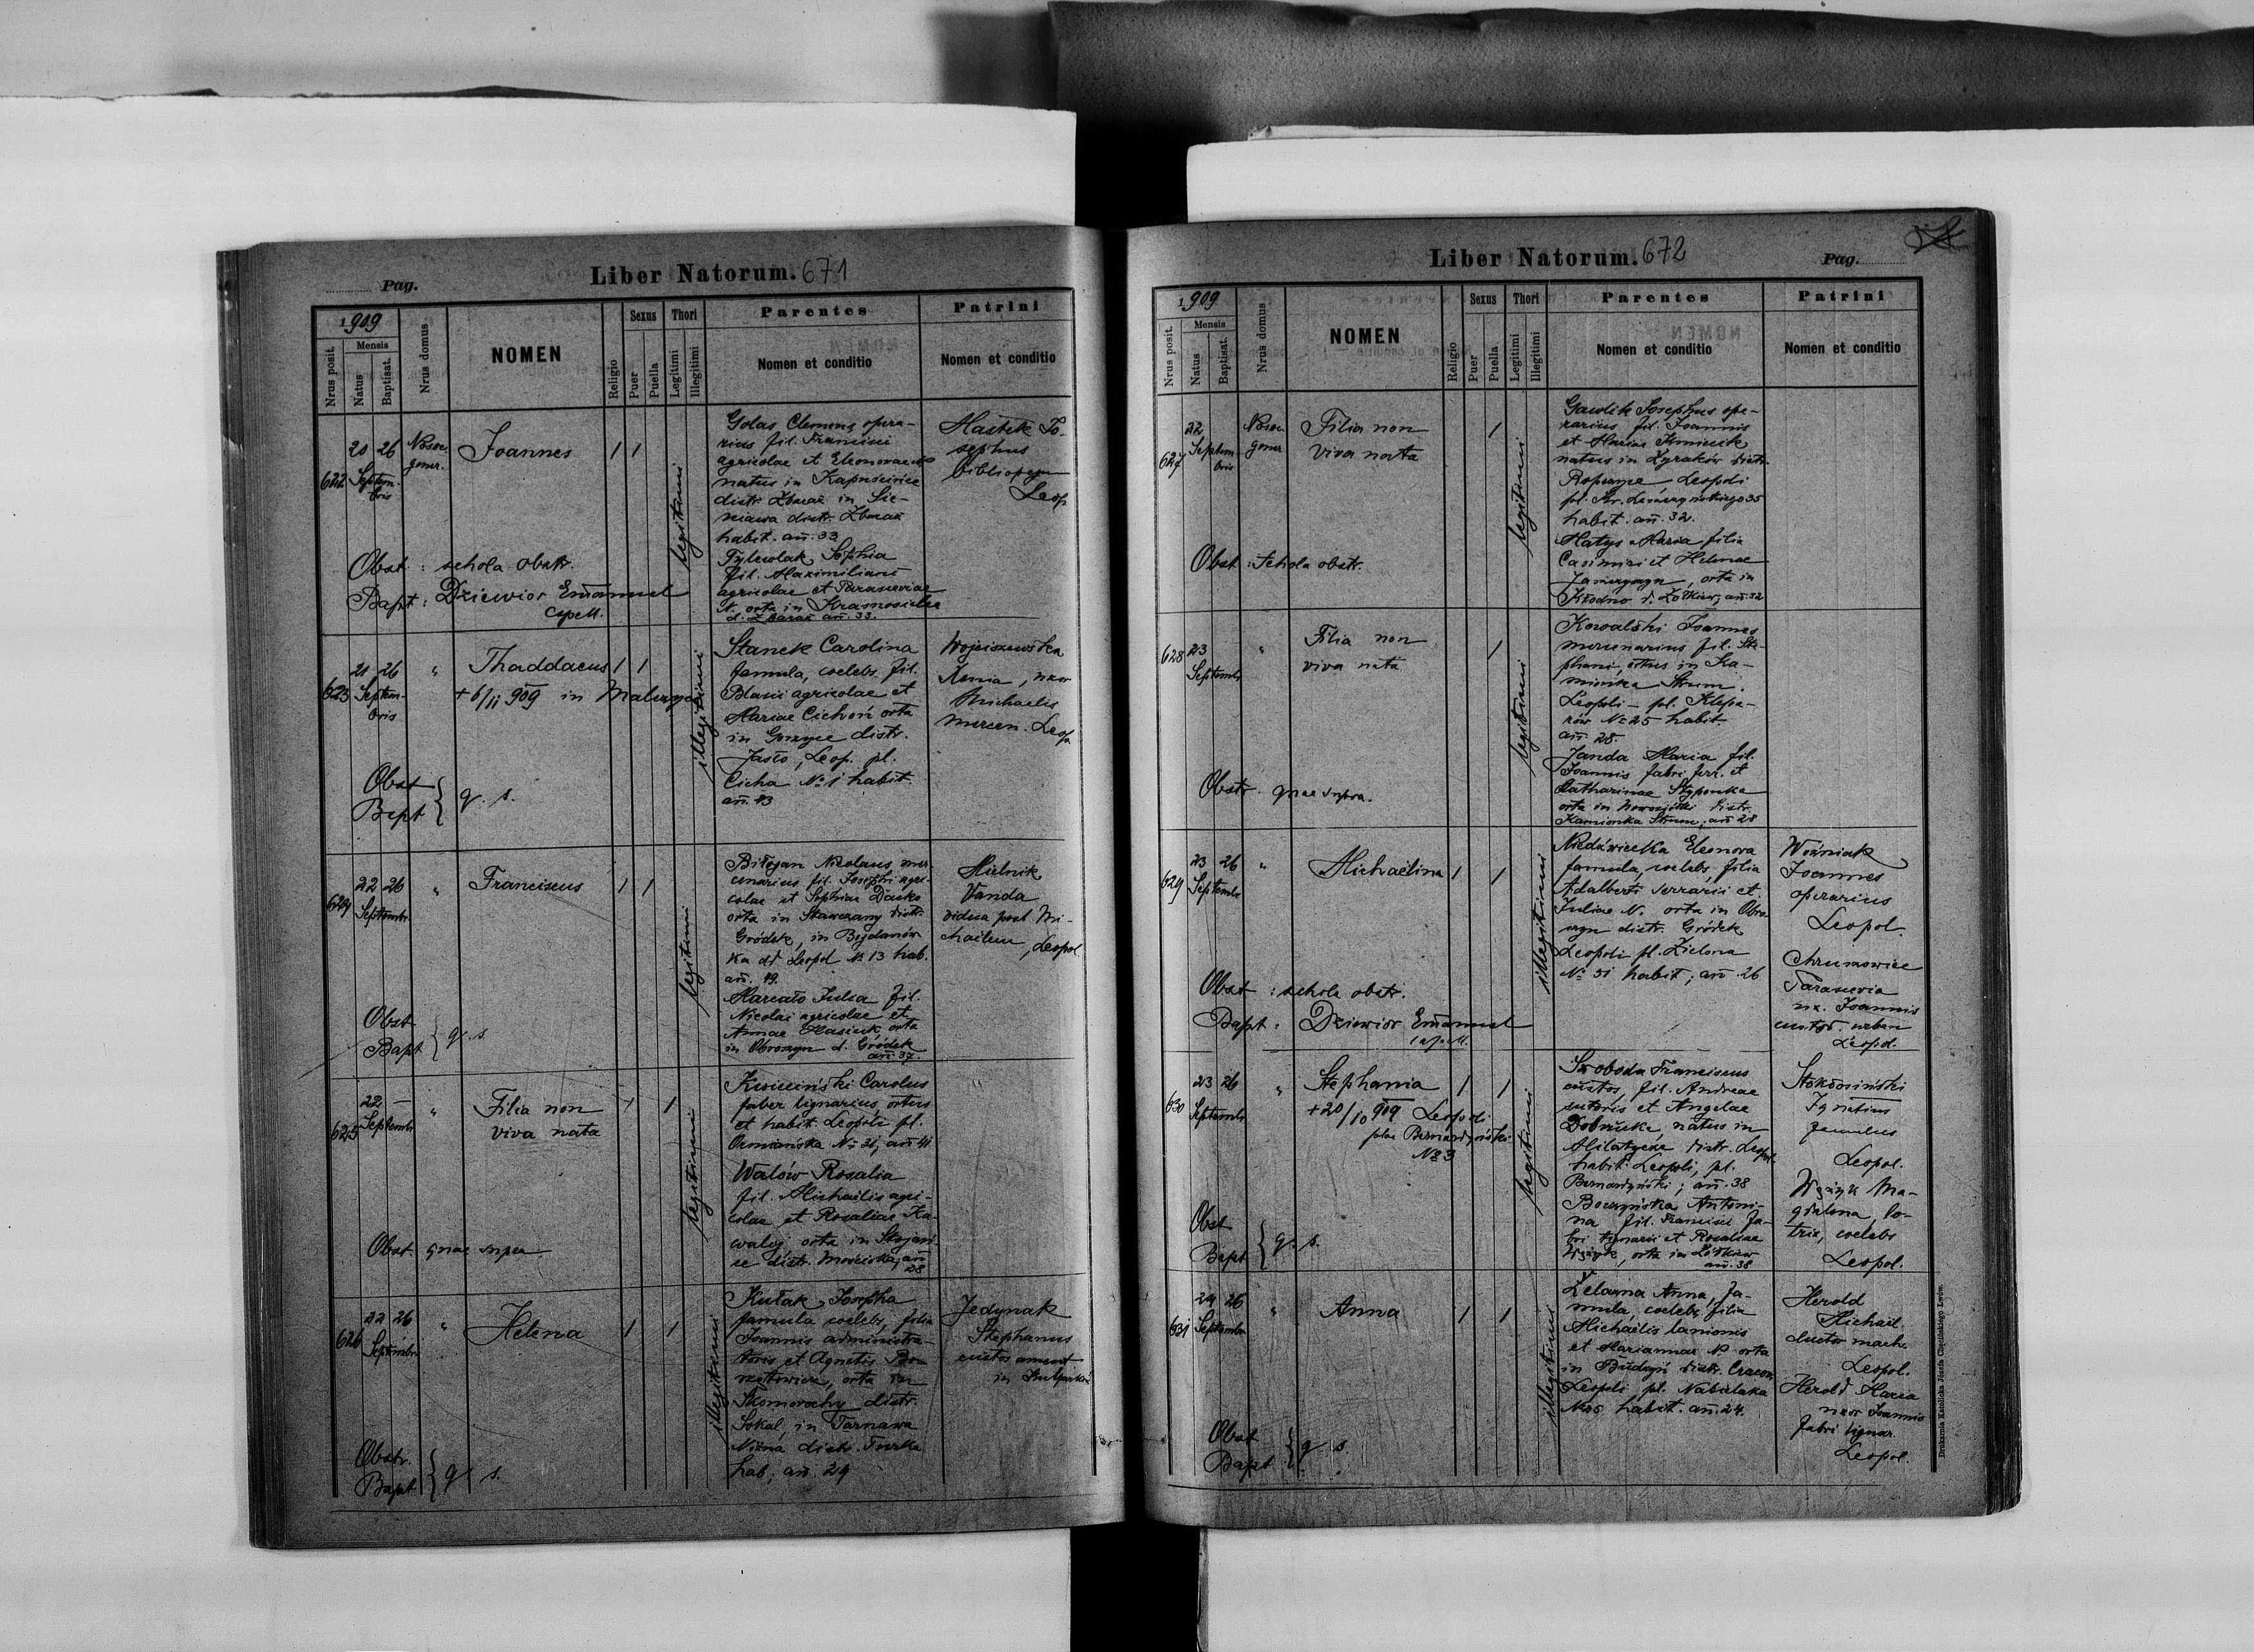 Pag.
Liber Natorum. 671
1909
Mensis
Nrus posit.
Natus
Baptisat.
Nrus domus
NOMEN
Religio
Sexus
Puer
Puella
Thori
Legitimi
Illegitimi
Parentes
Nomen et conditio
Patrini
Nomen et conditio
622
20 26
Septem-
bris
Nosoc.
gener.
Joannes
1 1
legitimi
Golas Clemens opera-
rius fil. Francisci
agricolae et Eleonorae
natus in
distr. Zbaraż in Sie-
niawa distr. Zbaraż
habit. an̄. 33
Sophia
fil. Maximiliani
agricolae et Parasceviae
N. orta in Krasnosielce
d. Zbaraż an̄. 33.
Hastek Jo-
sephus
bibliopega
Leop.
Obst : schola obstr.
Bapt : Dziewior Em̄anuel
capell.
623
21 26
Septem-
bris
"
Thaddaeus 1 1
+ 6/11 909 in
illegitimi
Stanek Carolina
famula, coelebs, fil.
Blasii agricolae et
Mariae Cichoń orta
in distr.
Jasło, Leop. pl.
Cicha No 1 habit.
an̄. 43
Wojciszewska
Xenia, uxor
Michaelis
mercen. Leop.
Obst
Bapt } q. s.
624
22 26
Septembr.
"
Franciscus
1 1
legitimi
Nicolaus, mer-
cenarius fil. Josephi agri-
colae et Sophiae
orta in Stawczany distr.
Gródek, in Bogdanów-
ka ad Leopol No 13 hab.
an̄. 49.
Julia fil.
Nicolai agricolae et
Annae Hasiuk orta
in Obroszyn d. Gródek
an̄. 37.
Mielnik
Vanda
vidua post Mi-
chaelem, Leopol.
Obst
Bapt } q. s.
625
22 —
Septembr
"
Filia non
viva nata
1 1
legitimi
Carolus
faber lignarius, ortus
et habit. Leopoli pl.
Ormiańska No 31, an̄. 41
Walów Rosalia
fil. Michaelis agri-
colae et Rosaliae Ko-
walij orta in
ce distr. Mościska, an̄
28
Obst. quae supra
626
22 26
Septembr
"
Helena
1 1
illegitimi
Kułak Josepha
famula coelebs, filia
Joannis administra-
toris et Agnetis
orta in
Skomorochy distr.
Sokal, in Tarnawa
Niżna distr. Turka
hab; an̄. 29
Jedynak
Stephanus
custos
in
Obstr.
Bapt } q. s.
Liber Natorum. 672
Pag.
1909
Mensis
Nrus posit.
Natus
Baptisat.
Nrus domus
NOMEN
Religio
Sexus
Puer
Puella
Thori
Legitimi
Illegitimi
Parentes
Nomen et conditio
Patrini
Nomen et conditio
627
22
Septem-
bris
Nosoc.
gener
Filia non
viva nata
1
legitimi
Gawlik Josephus ope-
rarius fil. Joannis
et Mariae
natus in Zyraków distr.
Ropczyce Leopoli
pl. Kr. Leszczyńskiego 35
habit. an̄. 32.
Matys Maria filia
Casimiri et Helenae
orta in
Kłodno d. Żółkiew, an̄. 32
Obst : Schola obstr.
628
23
Septembr
"
Filia non
viva nata
1
legitimi
Kowalski Joannes
mercenarius fil. Ste-
phani, ortus in Ka-
mionka Strum.
Leopoli — pl. Klepa-
rów No 25 habit
an̄. 28.
Janda Maria fil.
Joannis fabri ferr. et
Catharinae
orta in distr.
Kamionka Strum; an̄ 28
Obstr quae supra.
629
23 26
Septembr
"
Michaelina 1 1
illegitimi
Niedźwiecka Eleonora
famula, coelebs, filia
Adalberti serrarii et
Juliae N. orta in Obro-
szyn distr. Gródek
Leopoli pl. Zielona
No 31 habit; an̄. 26
Woźniak
Joannes
operarius
Leopol.
Parascevia
ux. Joannis
custod. urban
Leopol.
Obst : schola obstr.
Bapt : Dziewior Em̄anuel
capell.
630
23 26
Septembr
"
Stephania 1 1
+ 20/10 909 Leopoli
plac Bernardyński
No 3
legitimi
Swoboda Franciscus
custos, fil. Andreae
sutoris et Angelae
natus in
distr. Leopol.
habit. Leopoli, pl.
Bernardyński; an̄. 38
Antoni-
na fil. Francisci fa-
bri lignarii et Rosaliae
orta in Żółkiew
an̄. 38
Ignatius
famulus
Leopol.
Ma-
gdalena, lo-
trix, coelebs
Leopol.
Obst
Bapt } q. s.
631
24 26
Septembr
"
Anna
1 1
illegitimi
Żelazna Anna, fa-
mula, coelebs, filia
Michaelis lanionis
et Mariannae N. orta
in distr. Cracov.
Leopoli pl. Nabielaka
habit. an̄. 24.
Herold
Michael.
ductor mach.
Leopol.
Herold Maria
uxor Joannis
fabri lignar.
Leopol.
Obst
Bapt } q. s.
Drukarnia Katolicka Józefa Chęcińskiego Lwów.